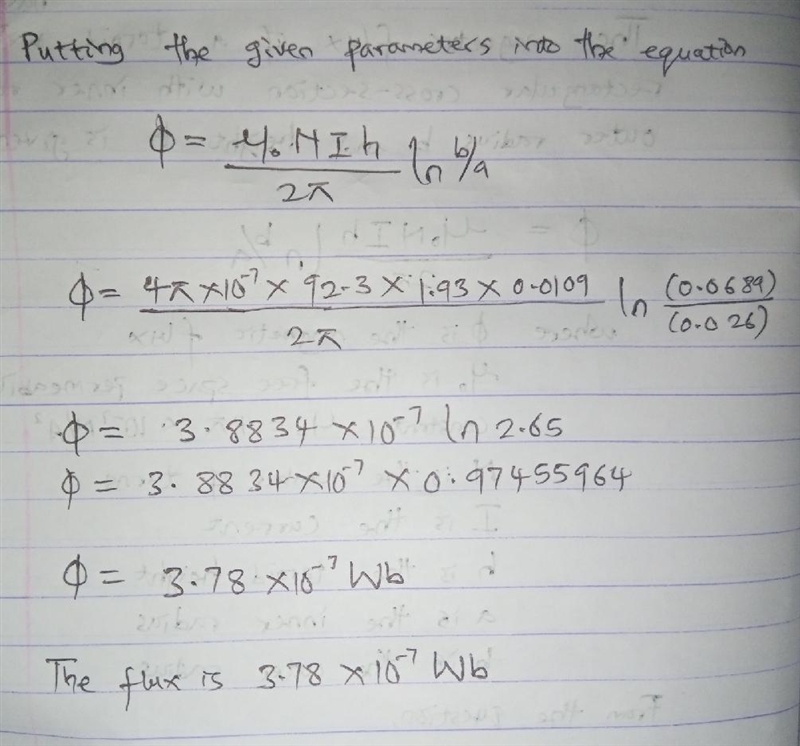 Putting the given parameters into the equation
Φ = μ₀NIh/2π ln b/a
Φ = 4π×10⁻⁷ × 92.3 × 1.93 × 0.0109/2π ln (0.0689)/(0.026)
Φ = 3.8834 ×10⁻⁷ ln 2.65
Φ = 3.8834×10⁻⁷ × 0.97455964
Φ = 3.78 ×10⁻⁷ Wb
The flux is 3.78 ×10⁻⁷ Wb